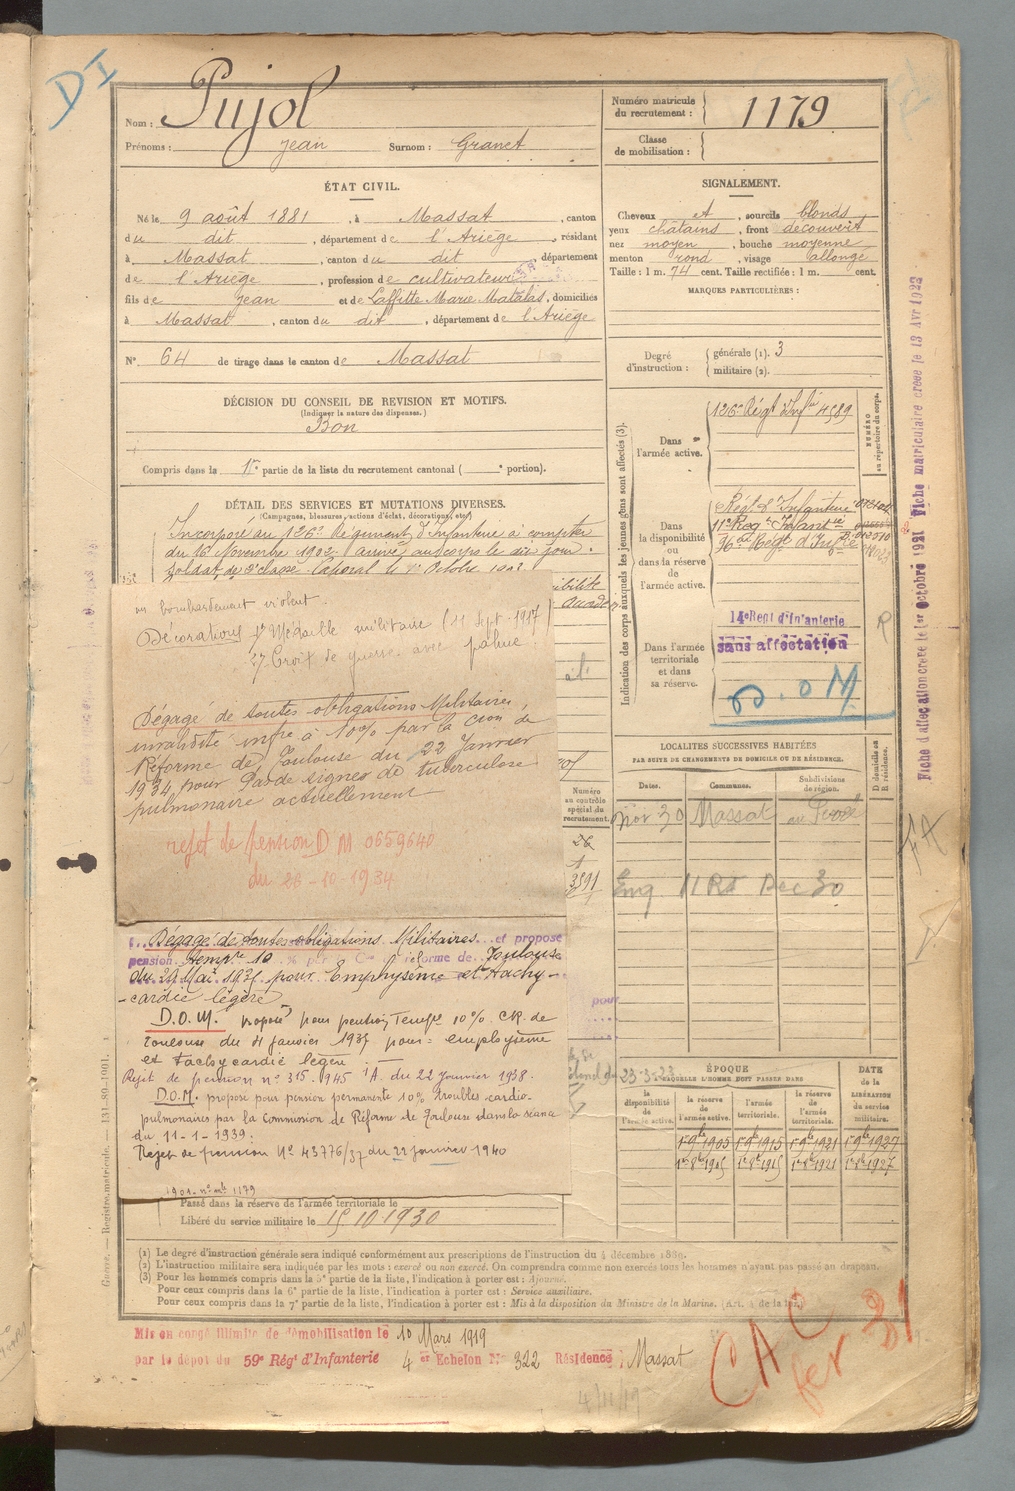 DI
Nom : Pujol
Prénoms : Jean Surnom : Granet
Numéro matricule du recrutement : 1179
Classe de mobilisation :
ÉTAT CIVIL.
Né le 9 août 1881, à Massat, canton
du dit, département de l'Ariège, résidant
à Massat, canton du dit, département
de l'Ariège, profession de cultivateur
fils de Jean et de Laffitte Marie Matalas, domiciliés
à Massat, canton du dit, département de l'Ariège
N° 64 de tirage dans le canton de Massat
DÉCISION DU CONSEIL DE REVISION ET MOTIFS.
(Indiquer la nature des dispenses.)
Bon
Compris dans la 1re partie de la liste du recrutement cantonal ( e portion).
DÉTAIL DES SERVICES ET MUTATIONS DIVERSES.
(Campagnes, blessures, actions d'éclat, décorations, etc.)
Incorporé au 126e Régiment d'Infanterie à compter
du 16 Novembre 1902, arrivé au corps le dit jour.
Soldat de 2e classe. Caporal le 1er Octobre 1903
un bombardement violent.
Décorations 1° Médaille militaire (11 Sept 1917)
2° Croix de guerre avec palme
Dégagé de toutes obligations Militaires
invalidité infre à 10% par la Cion de
Réforme de Toulouse du 22 Janvier
1934, pour Pas de signes de tuberculose
pulmonaire actuellement
rejet de pension D M 0659640
du 26-10-1934
Dégagé de toutes obligations Militaires et proposé
pension Tempre 10 % par Con réforme de Toulouse
du 29 Mai 1935 pour Emphysème et tachy-
-cardie légère
D.O.M. proposé pour pension Tempre 10% CR de
Toulouse du 11 janvier 1937 pour : emphysème
et tachycardie légère
Rejet de pension n° 315.945 A. du 22 Janvier 1938.
D.O.M. proposé pour pension permanente 10% troubles cardio-
pulmonaires par la Commission de Réforme de Toulouse dans la séance
du 11-1-1939.
Rejet de pension N° 43776/37 du 22 janvier 1940
1901. n° mle 1179
Passé dans la réserve de l'armée territoriale le
Libéré du service militaire le 15 10 1930
SIGNALEMENT.
Cheveux et, sourcils blonds
yeux châtains, front découvert
nez moyen, bouche moyenne
menton rond, visage allongé
Taille : 1 m. 74 cent. Taille rectifiée : 1 m. cent.
MARQUES PARTICULIÈRES :
Degré d'instruction : générale (1). 3
militaire (2).
Indication des corps auxquels les jeunes gens sont affectés (3).
NUMÉRO au répertoire du corps.
Dans l'armée active.
126e Régt d'Infie 4589
Dans la disponibilité ou dans la réserve de l'armée active.
Régt d'Infanterie
11e Régt Infanterie
96e Régt d'Infie
Dans l'armée territoriale et dans sa réserve.
14e Regt d'Infanterie
sans affectation
D.O.M
R
LOCALITES SUCCESSIVES HABITÉES
PAR SUITE DE CHANGEMENTS DE DOMICILE OU DE RÉSIDENCE.
Dates. Communes. Subdivisions de région. D domicile ou R résidence.
Nov 30 Massat
11 RI Dec 30
Numéro au contrôle spécial du recrutement.
26
3591
23-3-23
ÉPOQUE
A LAQUELLE L'HOMME DOIT PASSER DANS
la disponibilité de l'armée active. la réserve de l'armée active. l'armée territoriale. la réserve de l'armée territoriale. DATE de la LIBÉRATION du service militaire.
1er 9bre 1905 1er 9bre 1915 1er 9bre 1921 1er 9bre 1927
1er 8bre 1905 1er 8bre 1915 1er 8bre 1921 1er 8bre 1927
Fiche d'affectation créée le 1er Octobre 1921 Fiche matriculaire créée le 13 Avr 1923
FA
Guerre. — Registre matricule. — 131-80-1901.
(1) Le degré d'instruction générale sera indiqué conformément aux prescriptions de l'instruction du 4 décembre 1889.
(2) L'instruction militaire sera indiquée par les mots : exercé ou non exercé. On comprendra comme non exercés tous les hommes n'ayant pas passé au drapeau.
(3) Pour les hommes compris dans la 5e partie de la liste, l'indication à porter est : Ajourné.
Pour ceux compris dans la 6e partie de la liste, l'indication à porter est : Service auxiliaire.
Pour ceux compris dans la 7e partie de la liste, l'indication à porter est : Mis à la disposition du Ministre de la Marine. (Art. 4 de la loi.)
Mis en congé illimité de démobilisation le 10 Mars 1919
par le dépôt du 59e Régt d'Infanterie 4 er Echelon N° 322 Résidence : Massat
CAC
fer 31
4/11/19